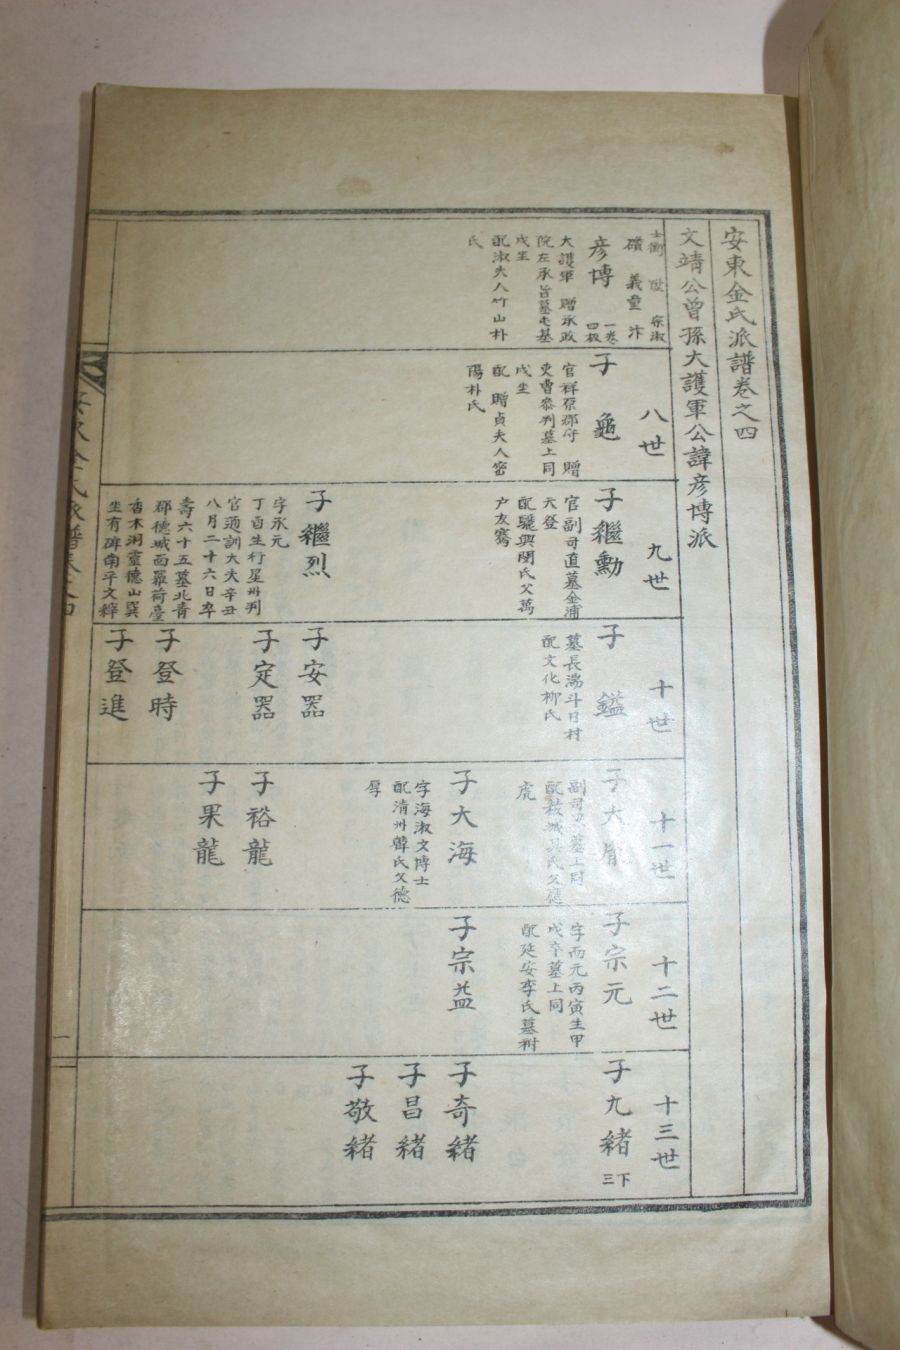 安東金氏派譜卷之四
文靖公曾孫大護軍公諱彦博派
士衡 陞 宗淑
礩 義童 汴
彦博 一卷四板
大護軍 贈承政
院左承旨墓屯基
戌坐
配淑夫人竹山朴
氏
八世
子 龜
官祥原郡守 贈
吏曹參判墓上同
戌坐
配 贈貞夫人密
陽朴氏
九世
子繼勳
官副司直墓金浦
天登
配驪興閔氏父萬
戶友騫
子繼烈
字承元
丁酉生行星州判
官通訓大夫辛丑
八月二十六日卒
壽六十五墓北青
郡德城面羅荷臺
香木洞靈德山巽
坐有碑南平文粹
十世
子 鎰
墓長湍斗日村
配文化柳氏
子安器
子定器
子登時
子登進
十一世
子大胤
副司直墓上同
虎
子大海
字海淑文博士
配清州韓氏父德
厚
子裕龍
子果龍
十二世
子宗元
字而元丙寅生甲
戌卒墓上同
配延安李氏墓祔
子宗益
十三世
子九緒 下三
子奇緒
子昌緒
子敬緒
一